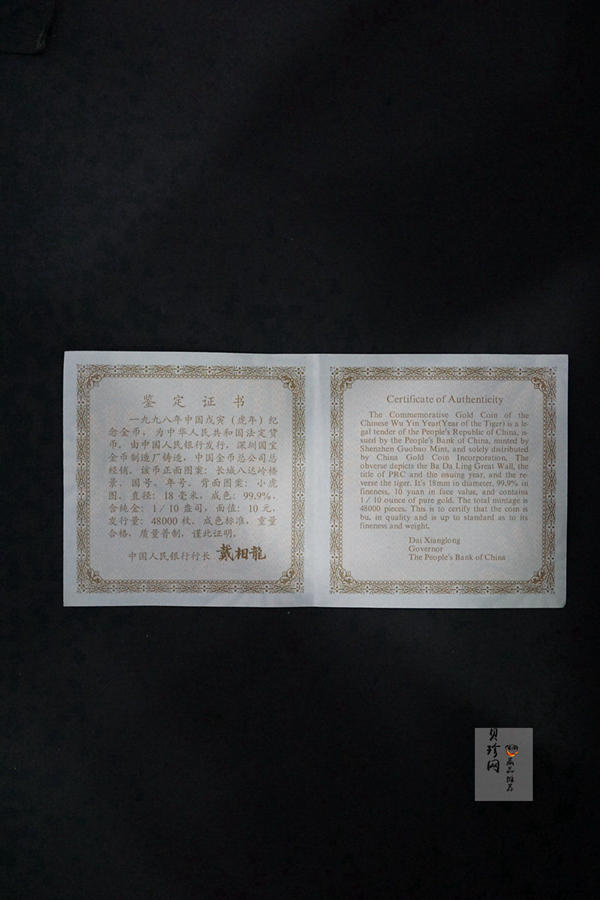 鉴定证书
一九九八年中国戊寅（虎年）纪
念金币，为中华人民共和国法定货
币，由中国人民银行发行，深圳国宝
金币制造厂铸造，中国金币总公司总
经销。该币正面图案：长城八达岭楼
景、国号、年号。背面图案：小虎
图。直径：18毫米，成色：99.9%，
含纯金：1/10盎司，面值：10元，
发行量：48000枚。成色标准，重量
合格，质量普制，谨此证明。
中国人民银行行长 戴相龍
Certificate of Authenticity
The Commemorative Gold Coin of the
Chinese Wu Yin Year(Year of the Tiger) is a le-
gal tender of the People's Republic of China, is-
sued by the People's Bank of China, minted by
Shenzhen Guobao Mint, and solely distributed
by China Gold Coin Incorporation. The
obverse depicts the Ba Da Ling Great Wall, the
title of PRC and the issuing year, and the re-
verse the tiger. It's 18mm in diameter, 99.9% in
fineness, 10 yuan in face value, and contains
1/10 ounce of pure gold. The total mintage is
48000 pieces. This is to certify that the coin is
bu. in quality and is up to standard as to its
fineness and weight.
Dai Xianglong
Governor
The People's Bank of China
贝珍网
藏品推荐